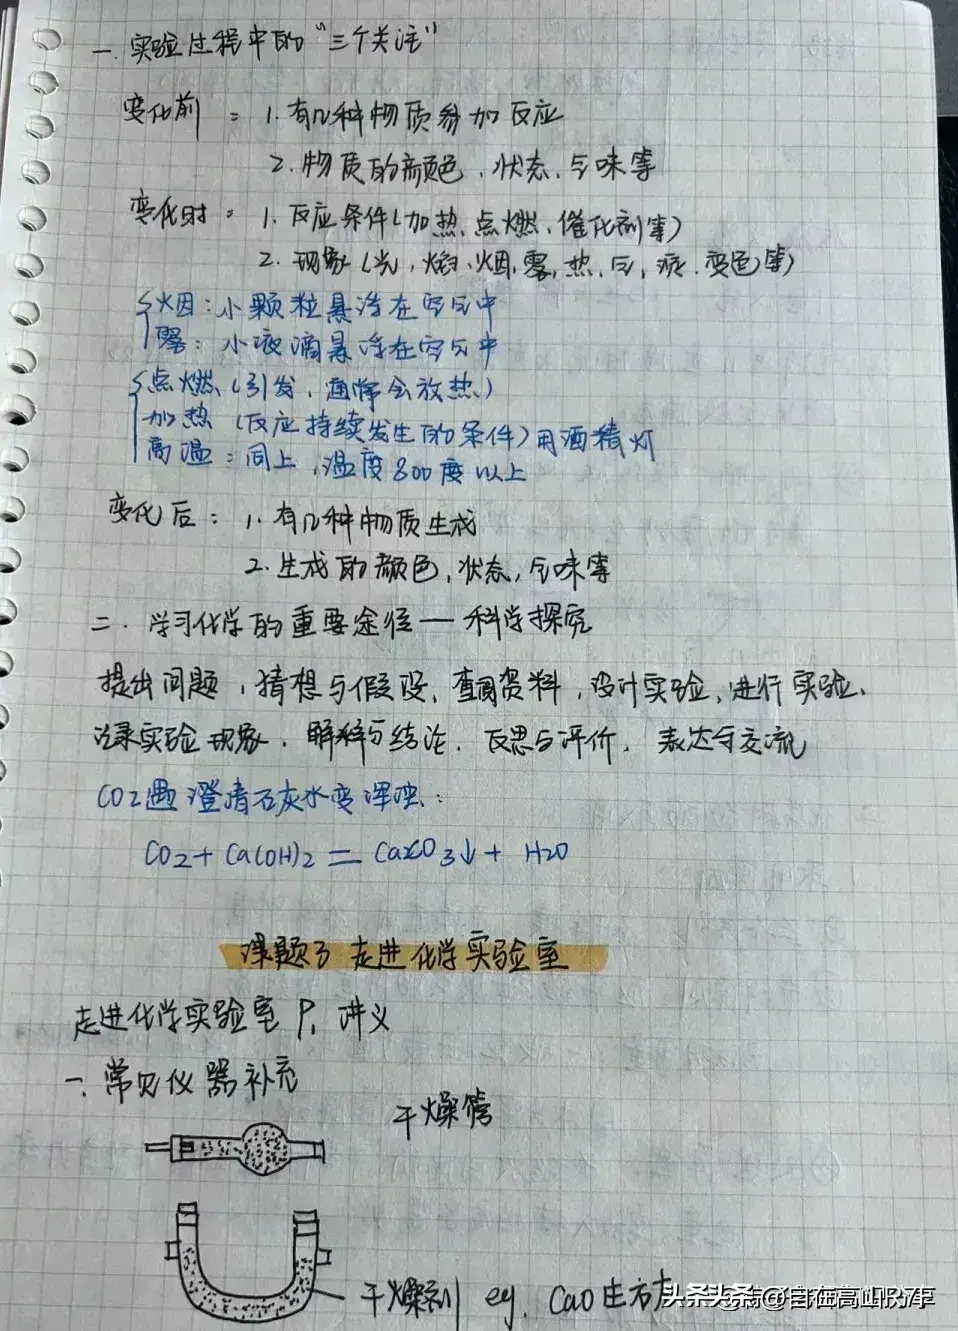 一. 实验过程中的"三个关注"
变化前 = 1. 有几种物质参加反应
2. 物质的颜色、状态、气味等
变化时 = 1. 反应条件(加热、点燃、催化剂等)
2. 现象(光、焰、烟、雾、热、气、液、变色等)
烟: 小颗粒悬浮在空气中
雾: 小液滴悬浮在空气中
点燃(引发, 通常会放热)
加热(反应持续发生的条件)用酒精灯
高温: 同上, 温度800度以上
变化后: 1. 有几种物质生成
2. 生成的颜色、状态、气味等
二. 学习化学的重要途径—科学探究
提出问题, 猜想与假设、查阅资料, 设计实验、进行实验、
记录实验现象, 解释与结论, 反思与评价, 表达与交流
CO2遇澄清石灰水变浑浊:
CO2 + Ca(OH)2 = CaCO3↓ + H2O
课题3 走进化学实验室
走进化学实验室 P1 讲义
一. 常见仪器补充
干燥管
干燥剂 eg. CaO 生
头条 @自在高山